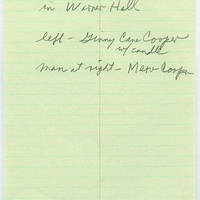 in Warner Hall
left - Ginny Cane Cooper
w/ candle
man at right - Merv Cooper